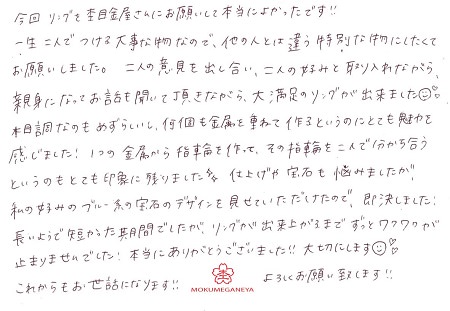 今回 リングを杢目金屋さんにお願いして本当によかったです!!
一生 二人でつける大事な物なので、他の人とは違う特別な物にしたくて
お願いしました。 二人の意見も出し合い、二人の好みと取り入れながら、
親身になってお話も聞いて頂きながら、大満足のリングが出来ました
木目調なのもめずらしいし、何個も金属を重ねて作るというのにとても魅力を
感じました! 1つの金属から指輪を作って、その指輪を二人で分かち合う
というのもとても印象に残りました 仕上げや宝石も悩みましたが、
私の好みのブルー系の宝石のデザインを見せていただけたので、即決しました!
長いようで短かった期間でしたが、リングが出来上がるまでずっとワクワクが
止まりませんでした! 本当にありがとうございました!! 大切にします
これからもお世話になります!! よろしくお願い致します!!
MOKUMEGANEYA